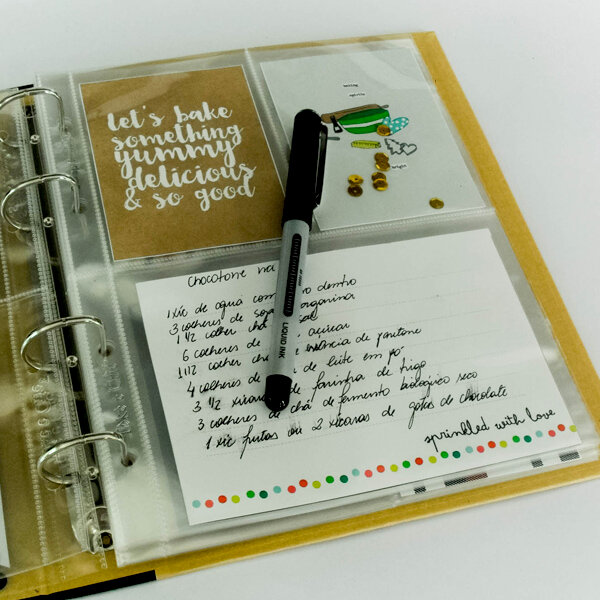 let's bake
something
yummy
delicious
& so good
baking
spirits
bright
LIQUID INK
chocotone
1 xíc de água com dentro
3 colheres de margarina
1 1/2 colher chá sal
6 colheres de açúcar
1 1/2 colher chá essência de panetone
4 colheres de de leite em pó
3 1/2 xícaras de farinha de trigo
3 colheres de chá de fermento biológico seco
1 xíc frutas ou 2 xícaras de gotas de chocolate
sprinkled with love